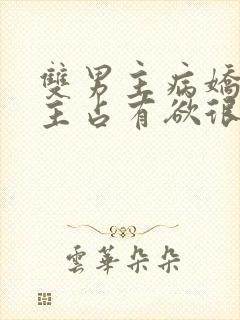 雙男主病嬌
主占有欲很
雲華朵朵